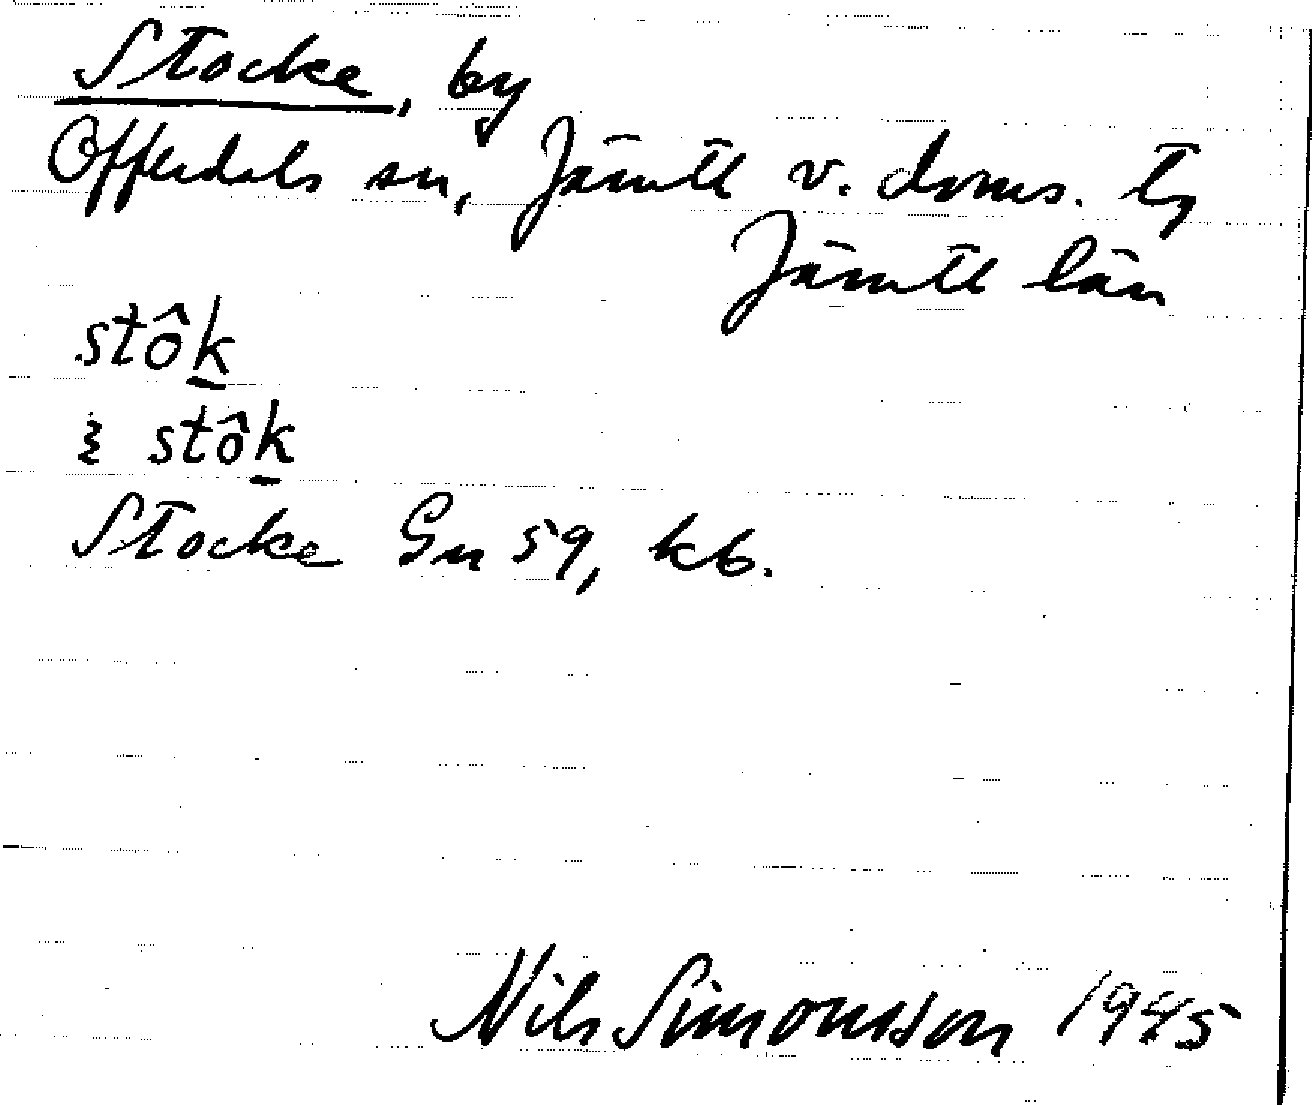 Stocke, by
Offerdals sn, Jämtl v. doms. tg
Jämtl län
stôk
ꜫ stôk
Stocke Gn 59, kb.
Nils Simonsson 1945